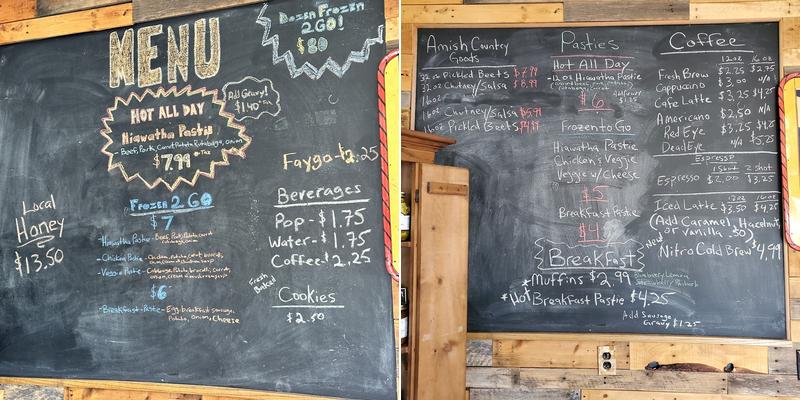 MENU
Dozen Frozen
2 GO!
$80
HOT ALL DAY
Hiawatha Pastie
Beef, Pork, Carrot, Potato, Rutabaga, Onion
$7.99 + Tax
Add Gravy!
$1.40
Faygo-$2.25
Local
Honey
$13.50
Frozen 2 GO
$7
-Hiawatha Pastie- Beef, Pork, Potato, Carrot
Rutabaga, Onion
-Chicken Pastie- Chicken, Potato, Carrot, broccoli,
-Veggie Pastie- Cabbage, Potato, brocoli, Carrot,
$6
-Breakfast-Pastie- Egg, breakfast sausage,
Potato, Onion, Cheese
Beverages
Pop-$1.75
Water-$1.75
Coffee-$2.25
Fresh
Baked
Cookies
$2.50
Amish Country
Goods
32 oz Pickled Beets $7.99
32 oz Chutney/Salsa $8.99
16oz
16oz Chutney/Salsa $5.99
16oz Pickled Beets $4.99
Pasties
Hot All Day
Hiawatha Pastie
$6
Add Gravy
$1.25
Frozen to Go
Hiawatha Pastie
Chicken & Veggie
Veggie w/ Cheese
$5
Breakfast Pastie
$4
Breakfast
*Muffins $2.99 Blueberry, Lemon
Strawberry/Rhubarb
*Hot Breakfast Pastie $4.25
Add Sausage
Gravy $1.25
Coffee
12oz 16oz
Fresh Brew $2.25 $2.75
Cappucino $3.00 N/A
Cafe Latte $3.25 $4.25
Americano $2.50 N/A
Red Eye $3.25 $4.25
Dead Eye N/A $5.25
Espresso
1 Shot 2 Shot
Espresso $2.00 $3.25
12oz 16oz
Iced Latte $3.50 $4.25
(Add Caramel, Hazelnut,
or Vanilla .50)
New
Nitro Cold Brew $4.99